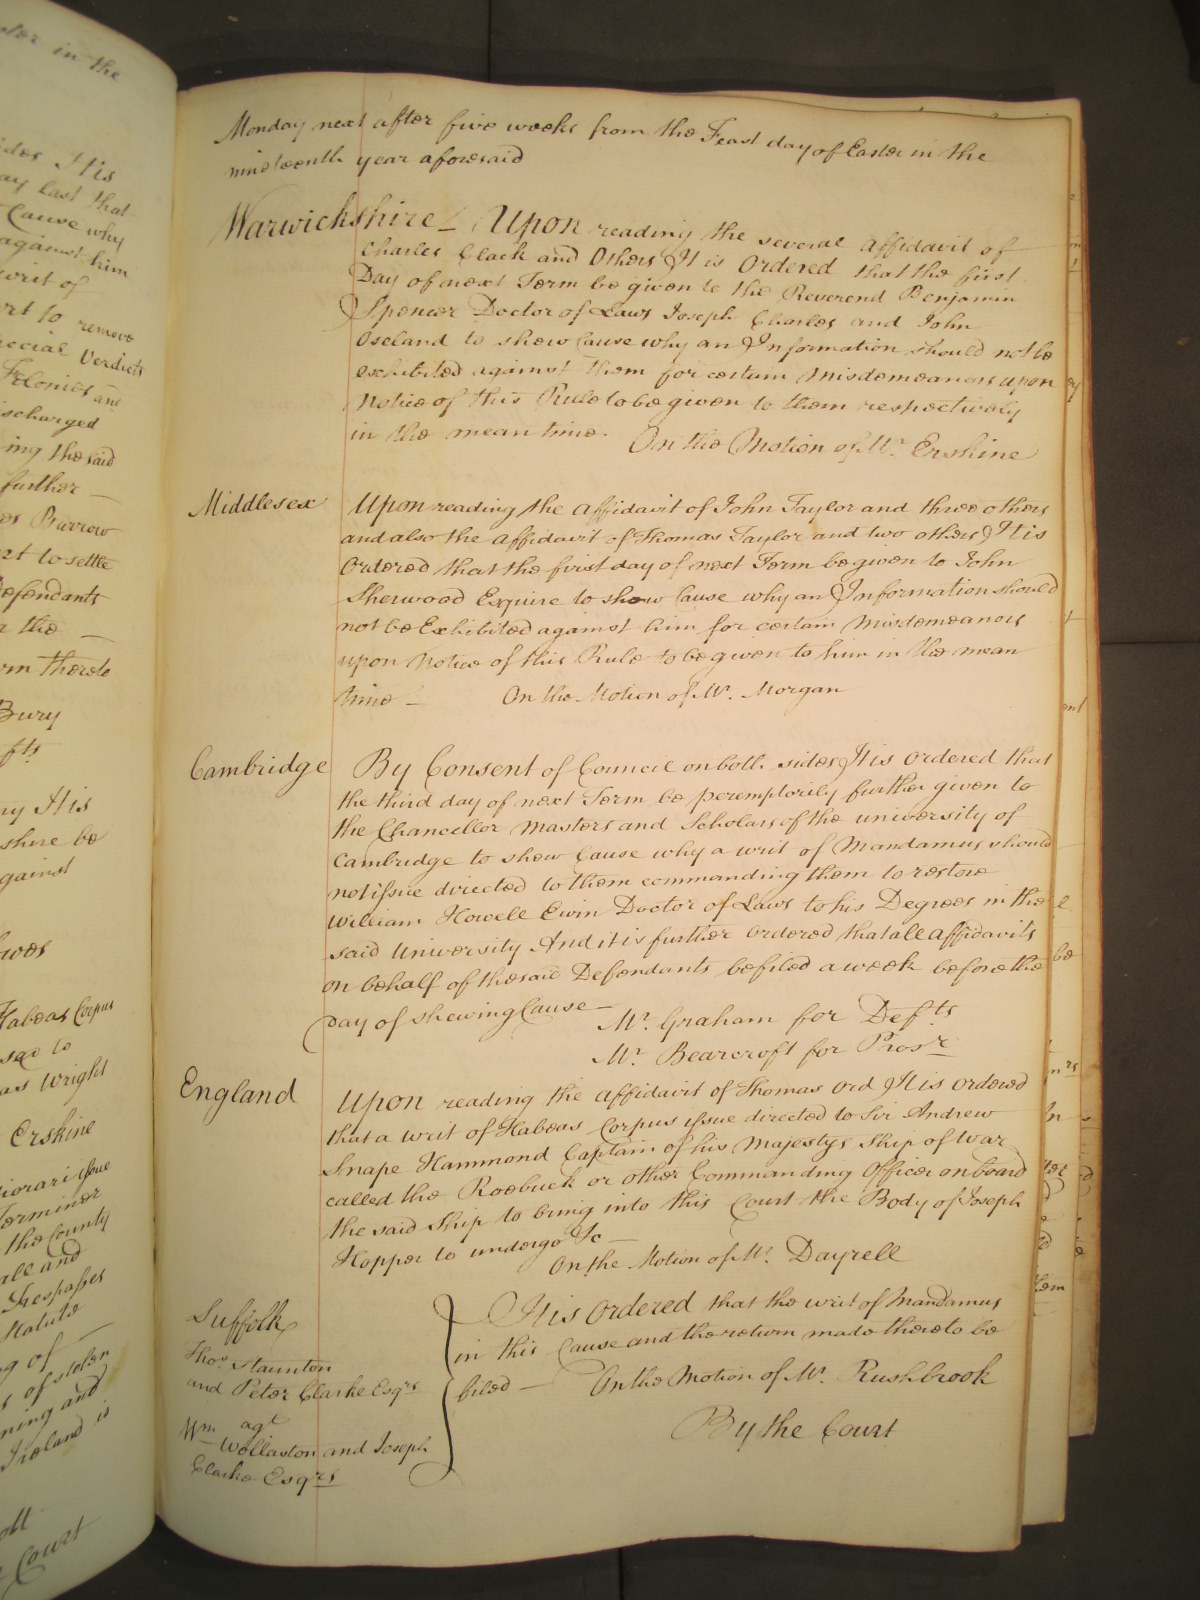 Monday next after five weeks from the Feast day of Easter in the
nineteenth year aforesaid
Warwickshire – Upon reading the several affidavit of
Charles Clack and Others It is Ordered that the first
Day of next Term be given to the Reverend Benjamin
Spencer Doctor of Laws Joseph Charles and John
Oseland to show Cause why an Information should not be
exhibited against them for certain Misdemeanors upon
Notice of this Rule to be given to them respectively
in the mean time. On the Motion of Mr. Erskine
Middlesex Upon reading the affidavit of John Taylor and three others
and also the affidavit of Thomas Taylor and two others It is
Ordered that the first day of next Term be given to John
Sherwood Esquire to show Cause why an Information should
not be Exhibited against him for certain Misdemeanors
upon Notice of this Rule to be given to him in the mean
time – On the Motion of Mr. Morgan
Cambridge By Consent of Council on both sides It is ordered that
the third day of next Term be peremptorily further given to
the Chancellor Masters and Scholars of the university of
Cambridge to shew Cause why a writ of Mandamus should
not issue directed to them commanding them to restore
William Howell Ewin Doctor of Laws to his Degrees in the
said University And it is further ordered that all affidavits
on behalf of the said Defendants be filed a week before the
Day of shewing Cause –
Mr. Graham for Defts
Mr. Bearcroft for Prosr.
England Upon reading the affidavit of Thomas Ord It is ordered
that a writ of Habeas Corpus issue directed to Sir Andrew
Snape Hammond Captain of his Majestys Ship of War
called the Roebuck or other Commanding Officer on board
the said Ship to bring into this Court the Body of Joseph
Hopper to undergo &c –
On the Motion of Mr. Dayrell
Suffolk
Thos. Staunton
and Peter Clarke Esqrs
agt
Wm Wollaston and Joseph
Clarke Esqrs
It is Ordered that the writ of Mandamus
in this Cause and the return made thereto be
filed – On the Motion of Mr. Rushbrook
By the Court